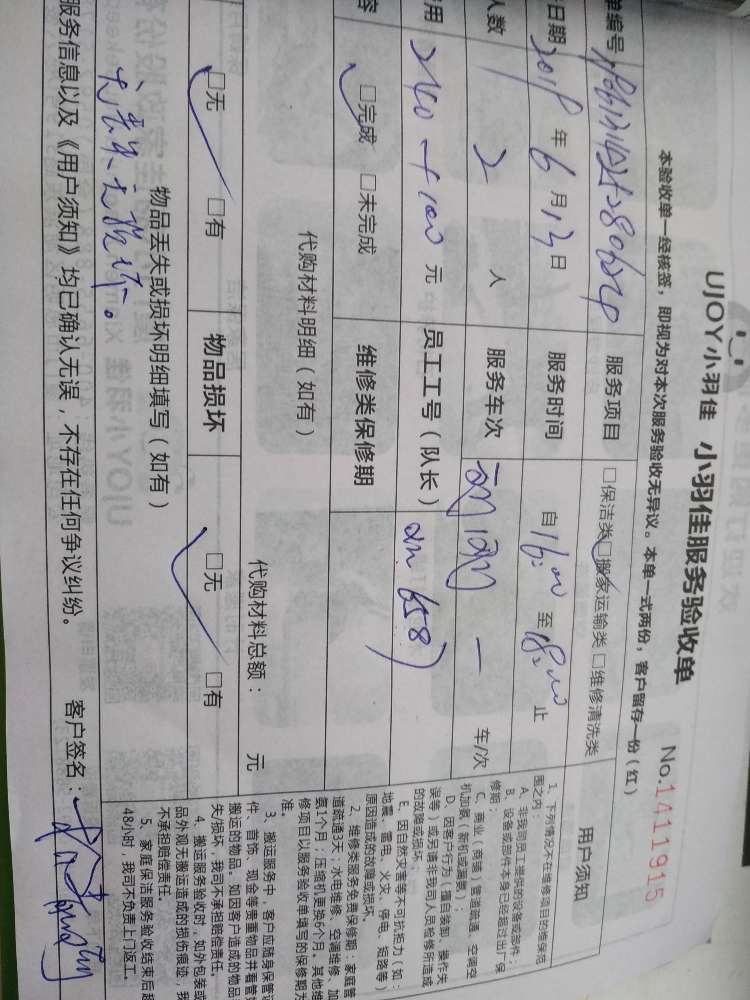 UJOY小羽佳 小羽佳服务验收单
No.1411915
本验收单一经核签，即视为对本次服务验收无异议。本单一式两份，客户留存一份（红）
单编号
服务项目 □保洁类 □搬家运输类 □维修清洗类
日期 2018 年 6 月 13 日 服务时间 自 16:00 至 18:00 止
人数 2 人 服务车次 一 车/次
用 240+100 元 员工工号（队长） 658
容 □完成 □未完成 维修类保修期
代购材料明细（如有） 代购材料总额： 元
□无 □有 物品损坏 □无 □有
物品丢失或损坏明细填写（如有）
无丢失无损坏。
服务信息以及《用户须知》均已确认无误，不存在任何争议纠纷。 客户签名：
用户须知
1、下列情况不在维修项目的维保范
围之内：
A、非我司员工提供的设备或部件；
B、设备或部件本身已经超过出厂保
修期；
C、商业（商铺）管道疏通、空调空
机加氨（新机或漏氨）；
D、因客户行为（擅自装卸、操作失
误等）或另请非我司人员检修所造成
的故障或损坏；
E、因自然灾害等不可抗拒力（如：
地震、雷电、火灾、停电、短路等）
原因造成的故障或损坏。
2、维修类服务免费保修期：家庭管
道疏通3天；水电维修、空调维修、加
氨1个月；压缩机更换6个月。其他维
修项目以服务验收单填写的保修期为
准。
3、搬运服务中，客户应随身保管证
件、首饰、现金等贵重物品并看管
搬运的物品。如因客户造成的物品
失/损坏，我司不承担赔偿责任。
4、搬运服务验收时，如外包装或
品外观无搬运造成的损伤痕迹，我
不承担赔偿责任。
5、家庭保洁服务验收结束后超
48小时，我司不负责上门返工。